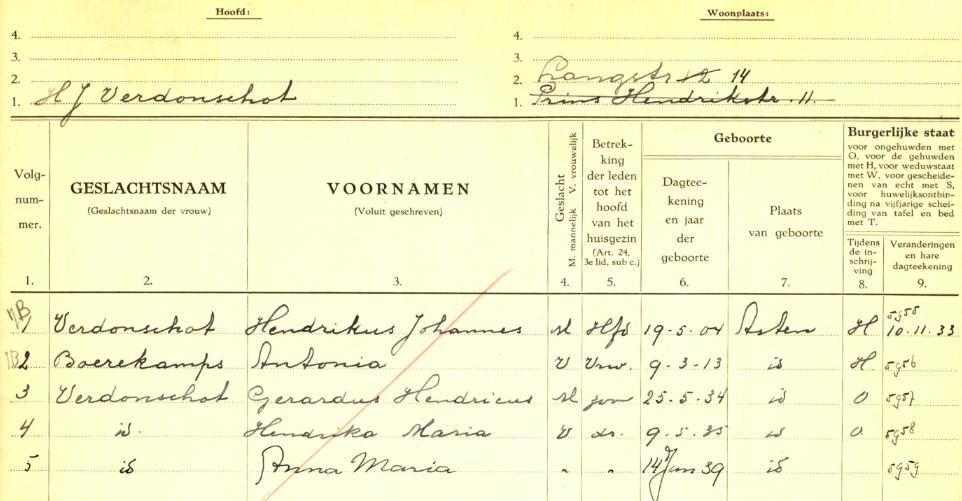 Hoofd: Woonplaats:
4. 4.
3. 3.
2. 2. Langstr 12 14
1. H J Verdonschot 1. Prins Hendrikstr. 11.
Volg-
num-
mer.
GESLACHTSNAAM
(Geslachtsnaam der vrouw)
VOORNAMEN
(Voluit geschreven)
Geslacht
M. mannelijk V. vrouwelijk
Betrek-
king
der leden
tot het
hoofd
van het
huisgezin
(Art. 24,
3e lid, sub c.)
Geboorte
Dagtee-
kening
en jaar
der
geboorte
Plaats
van geboorte
Burgerlijke staat
voor ongehuwden met
O, voor de gehuwden
met H, voor weduwstaat
met W, voor gescheide-
nen van echt met S,
voor huwelijksontbin-
ding na vijfjarige schei-
ding van tafel en bed
met T.
Tijdens
de in-
schrij-
ving
Veranderingen
en hare
dagteekening
1. 2. 3. 4. 5. 6. 7. 8. 9.
NB 5955
1 Verdonschot Hendrikus Johannes M Hfd 19-5-04 Asten H 10.11.33
2 Boerekamps Antonia V Vrw. 9-3-13 id H. 5956
3 Verdonschot Gerardus Hendricus M zoon 25-5-34 id O 5957
4 id. Hendrika Maria V dr. 9-5-35 id O. 5958
5 id Anna Maria " " 14 Jun 39 id 5959